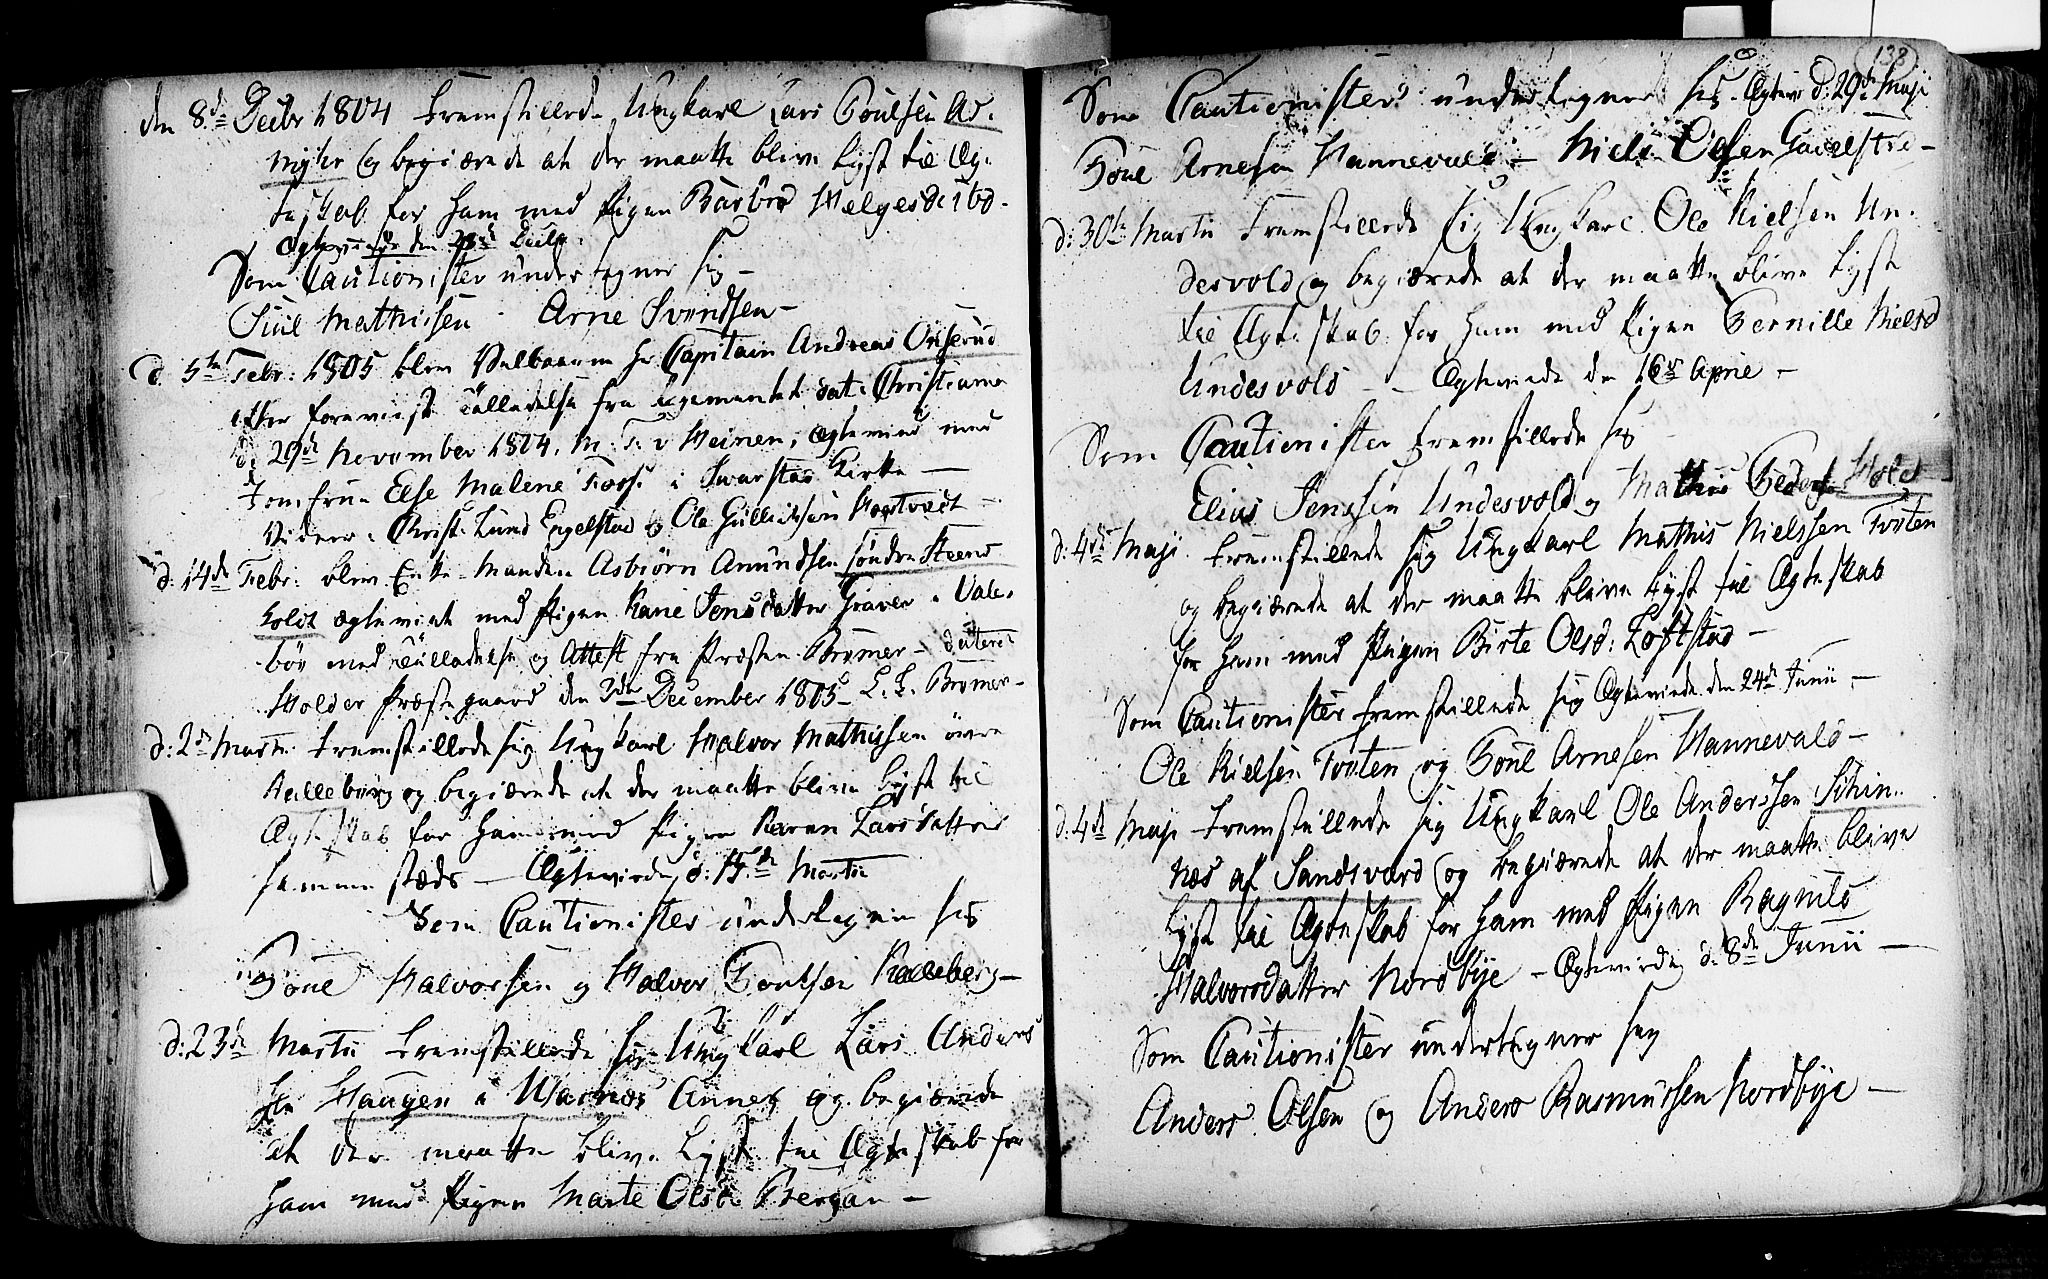 den 8de Decbr 1804 fremstillede Ungkarl Lars Poulsen
og begiærede at der maatte blive lyst til Æg-
teskab for ham med Pigen Barbro Helgesd:
Ægteviede den
Som Cautionister undertegner sig -
Juul Mathissen - Arne Svendsen -
d. 5te Febr: 1805 blev Velbaarne Hr Capitain Andreas
efter foreviist Tilladelse fra Regementet dat: Christiania
d: 29de November 1804. v Heinen, ægteviet med
Jomfrue Else Malene i Svarstad Kirke -
Vidner: Christ: Lund Engelstad og Ole Gulliksen
d: 14de Febr: blev Enke-Manden Asbiørn Amundsen søndre Steens-
holdt ægteviet med Pigen Karie Jensdatter Graver i Vale-
bøe med Tilladelse og Attest fra Præsten Bremer - dateret
Holden Præstegaard den 3die December 1805 Bremer -
d: 2de Martii fremstillede sig Ungkarl Halvor Mathissen øvre
Kalleberg og begiærede at der maatte blive lyst til
Ægteskab for ham med Pigen Karen Larsdatter
sammestæds - Ægteviede d: 15de Martii
Som Cautionister undertegner sig
Poul Halvorsen og Halvor Poulsen Kalleberg -
d: 23de Martii fremstillede sig Ungkarl Lars Anders
sen Haugen i Annex og begiærede
at der maatte blive lyst til Ægteskab for
ham med Pigen Marte Olsd: Bergan -
138
Som Cautionister undertegner sig. Ægtev: d: 29de Maji
Poul Arnesen Hannevold - Niels Olsen Gavelstad -
d: 30te Martii fremstillede sig Ungkarl Ole Nielsen Un-
desvold og begiærede at der maatte blive lyst
til Ægteskab for ham med Pigen Pernille Nielsd
Undesvold - - Ægteviede den 16de April -
Som Cautionister fremstillede sig
Elias Jenssen Undesvold og Mathis Peders: Holt
d: 4de Maji fremstillede sig Ungkarl Mathis Nielssen Tveten
og begiærede at der maatte blive lyst til Ægteskab
for ham med Pigen Birte Olsd: Løftstad -
Som Cautionister fremstillede sig Ægteviede den 24de Junii -
Ole Nielsen Tveten og Poul Arnesen Hannevold -
d: 4de Maji fremstillede sig Ungkarl Ole Anderssen Skin-
nes af Sandsværd og begiærede at der maatte blive
lyst til Ægteskab for ham med Pigen Ragnild
Halvorsdatter Nordbye - Ægteviede d: 8de Junii -
Som Cautionister undertegner sig
Anders Olsen og Anders Rasmussen Nordbye -